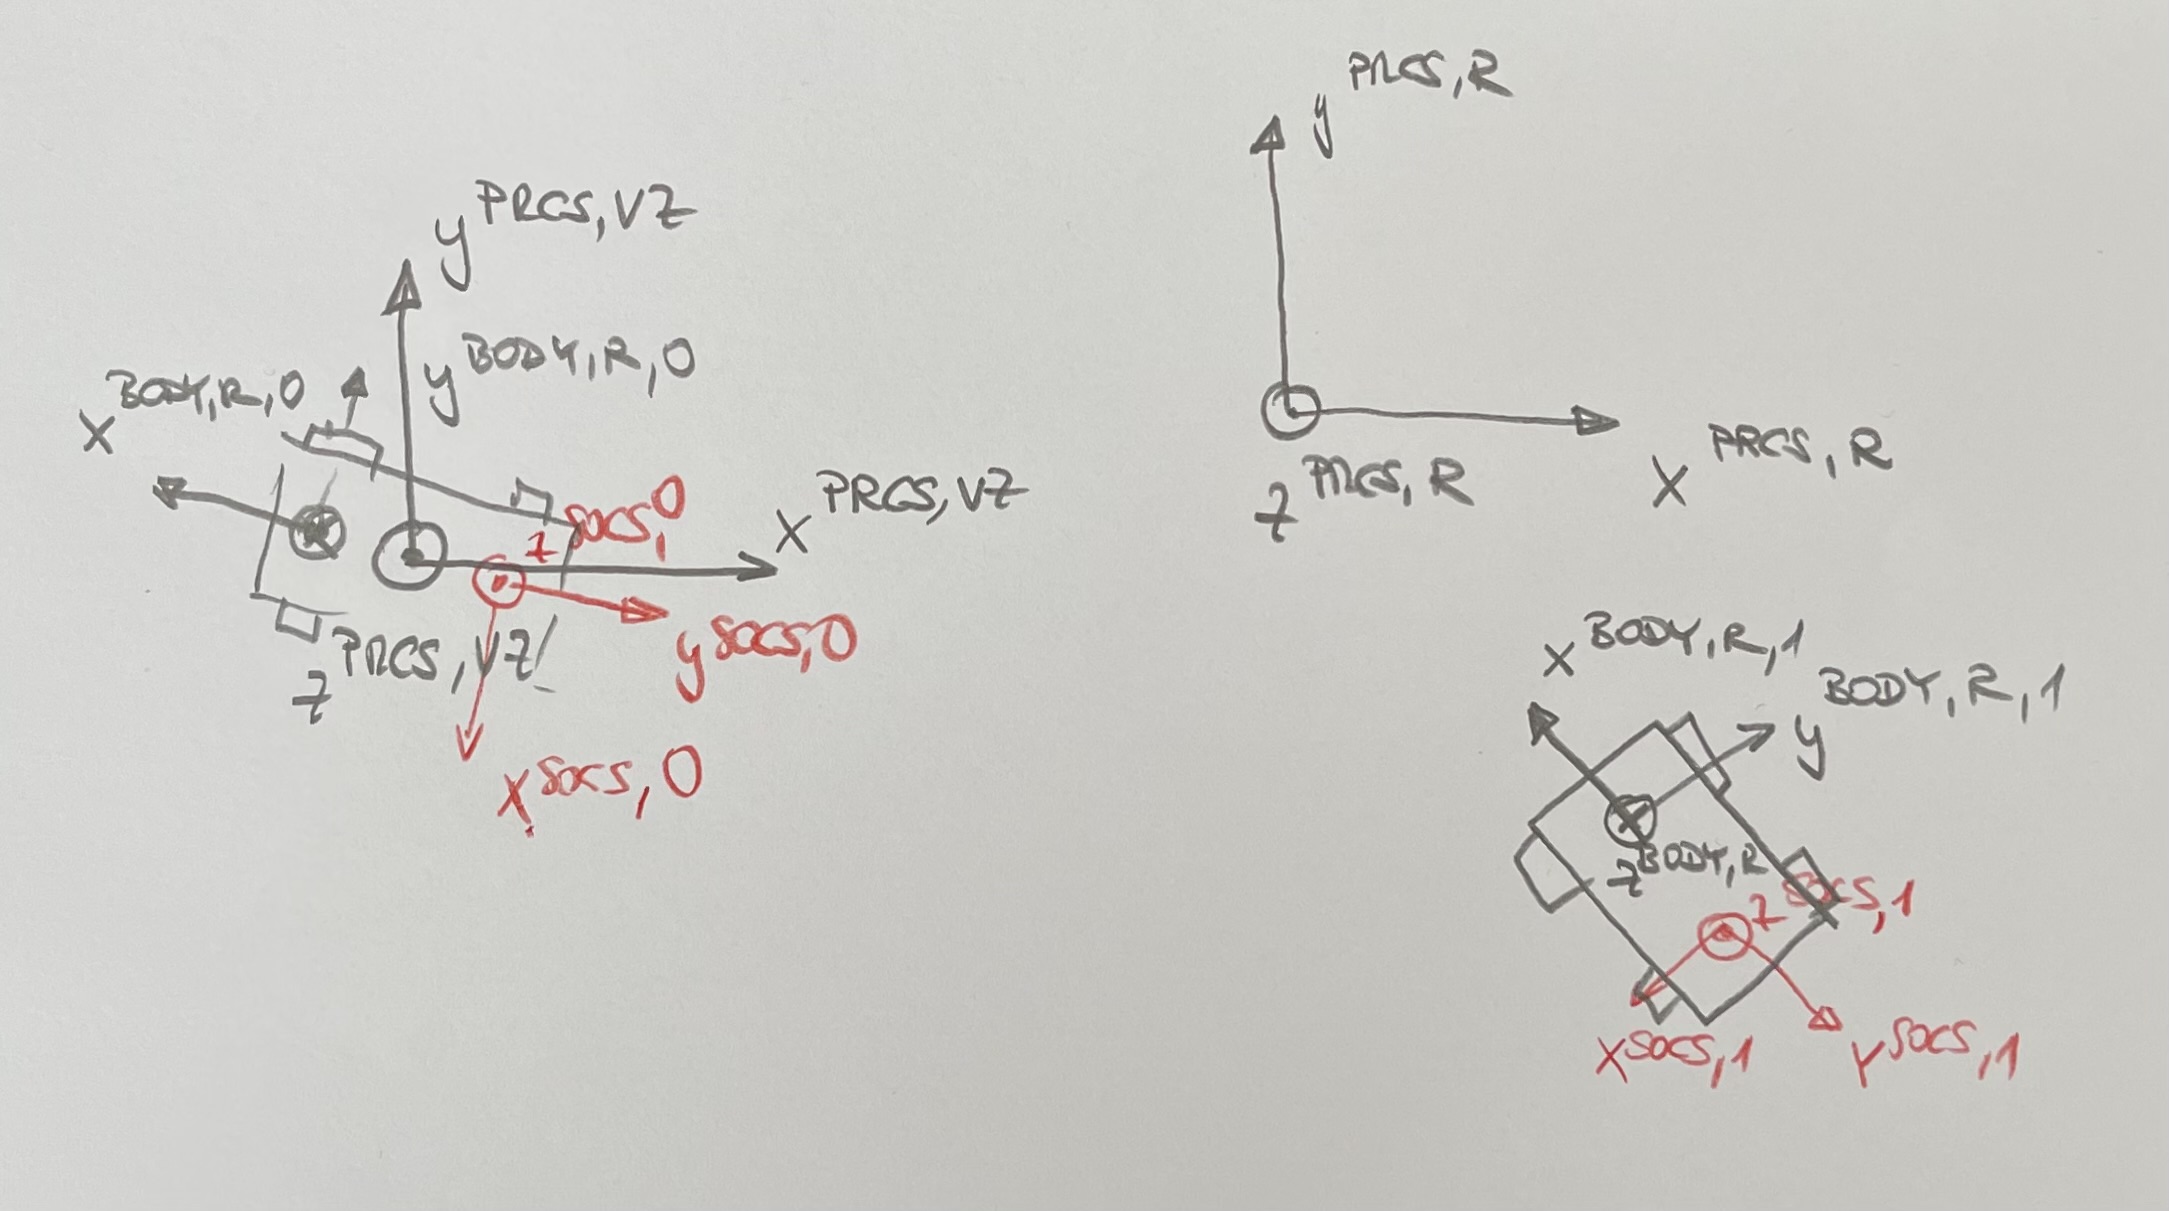 y PRCS, VZ
y BODY, R, 0
x BODY, R, 0
x PRCS, VZ
z SOCS, 0
y SOCS, 0
z PRCS, VZ
x SOCS, 0
y PRCS, R
x PRCS, R
z PRCS, R
x BODY, R, 1
y BODY, R, 1
z BODY, R
z SOCS, 1
x SOCS, 1
y SOCS, 1